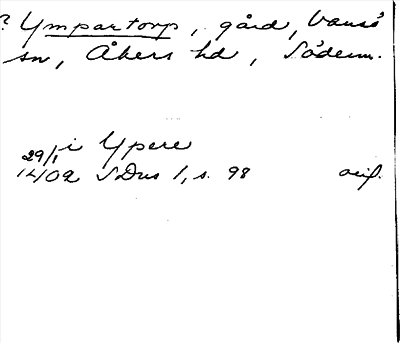 ? Ympartorp, gård, Vansö
sn, Åkers hd, Söderm.
i Ypere
29/1 1402 SDns 1, s. 98 orig.